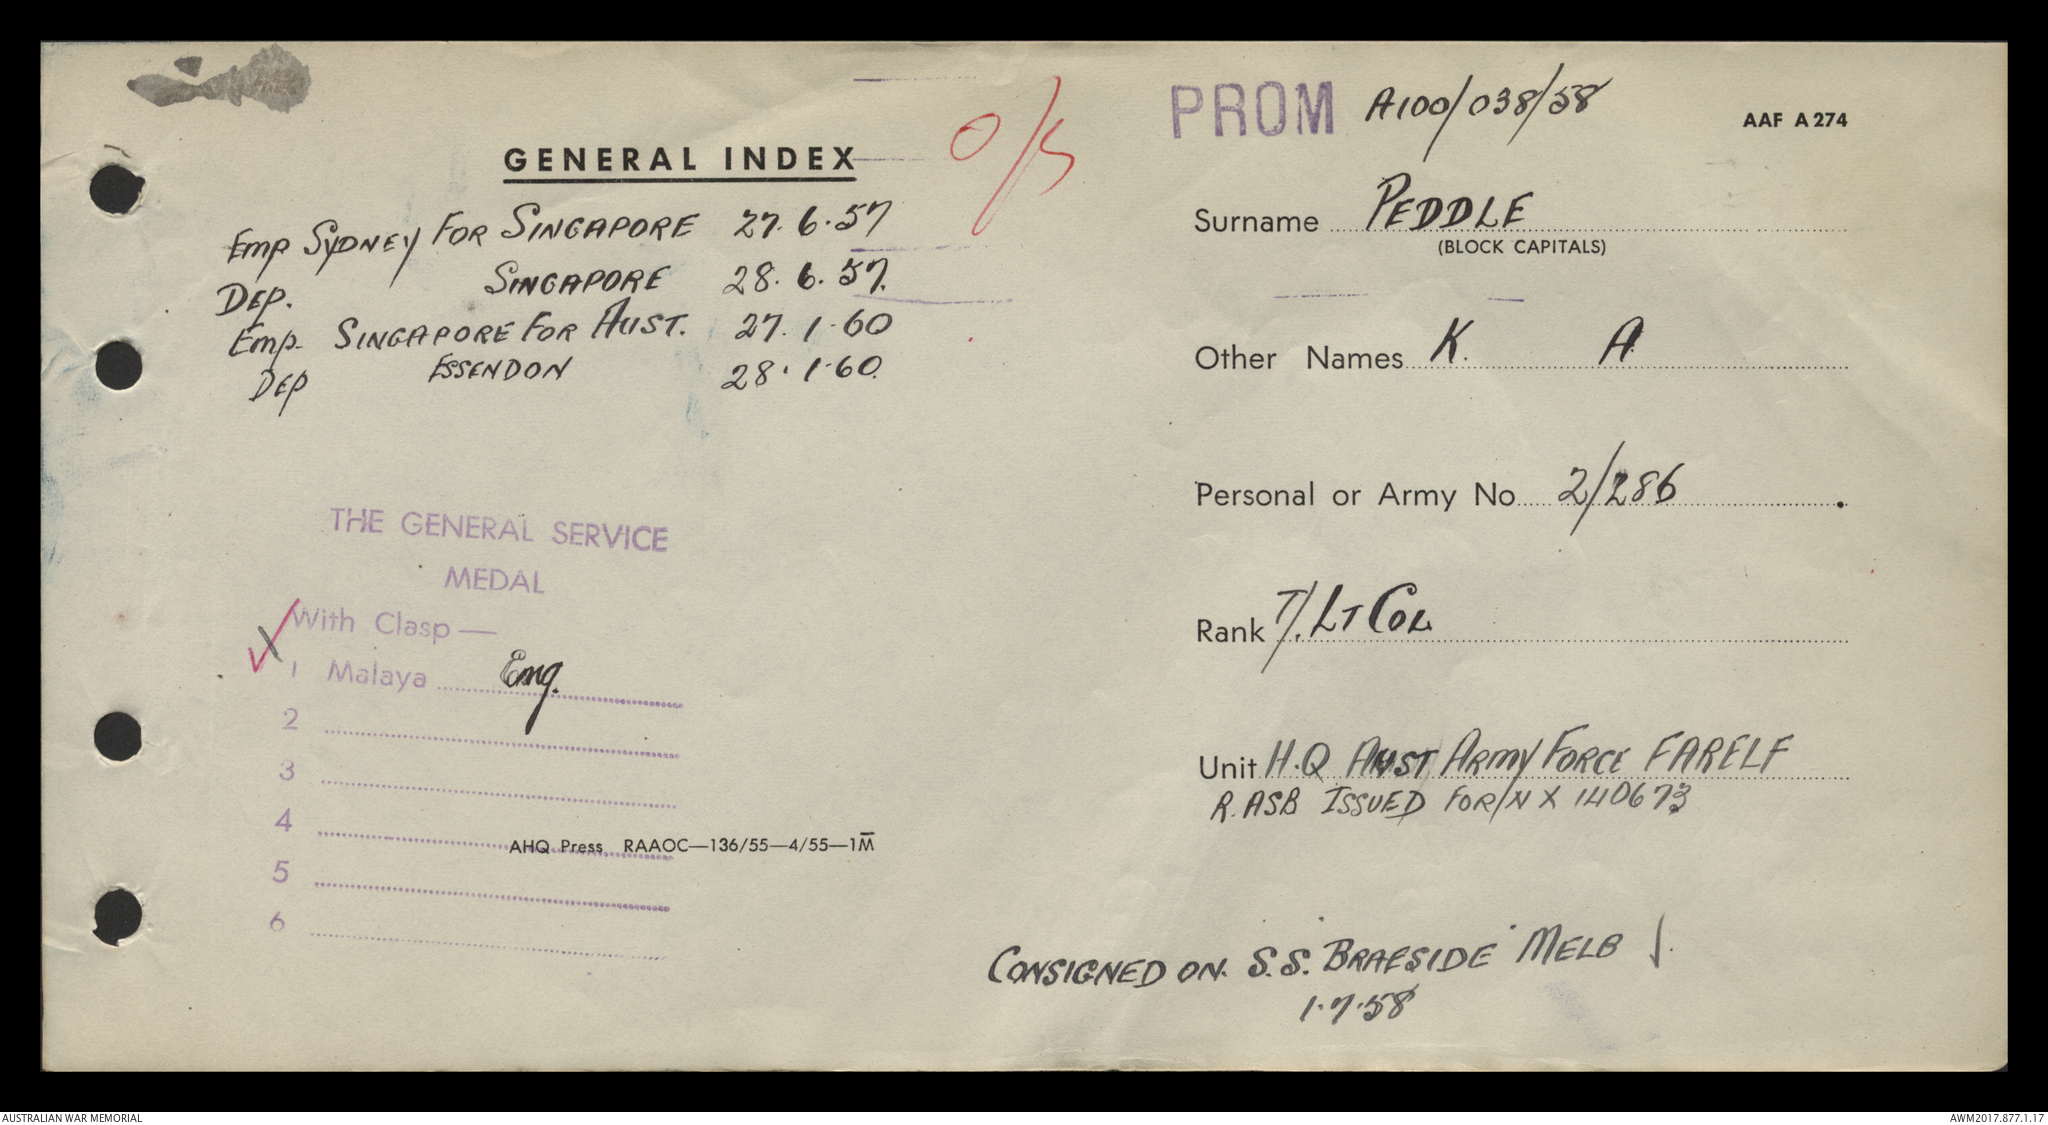 GENERAL INDEX
O/S
Emp SYDNEY FOR SINGAPORE 27.6.57
DEP. SINGAPORE 28.6.57.
Emp. SINGAPORE FOR AUST. 27.1.60
DEP ESSENDON 28.1.60.
THE GENERAL SERVICE
MEDAL
With Clasp —
1 Malaya Emg.
2
3
4
AHQ Press RAAOC—136/55—4/55—1M
5
6
PROM A100/038/58
AAF A 274
Surname PEDDLE
(BLOCK CAPITALS)
Other Names K. A
Personal or Army No 2/286
Rank T/. LT COL
Unit H.Q AUST ARMY FORCE FARELF
R.ASB ISSUED FOR/N X 140673
CONSIGNED ON. S.S. "BRAESIDE" MELB
1.7.58
AUSTRALIAN WAR MEMORIAL
AWM2017.877.1.17